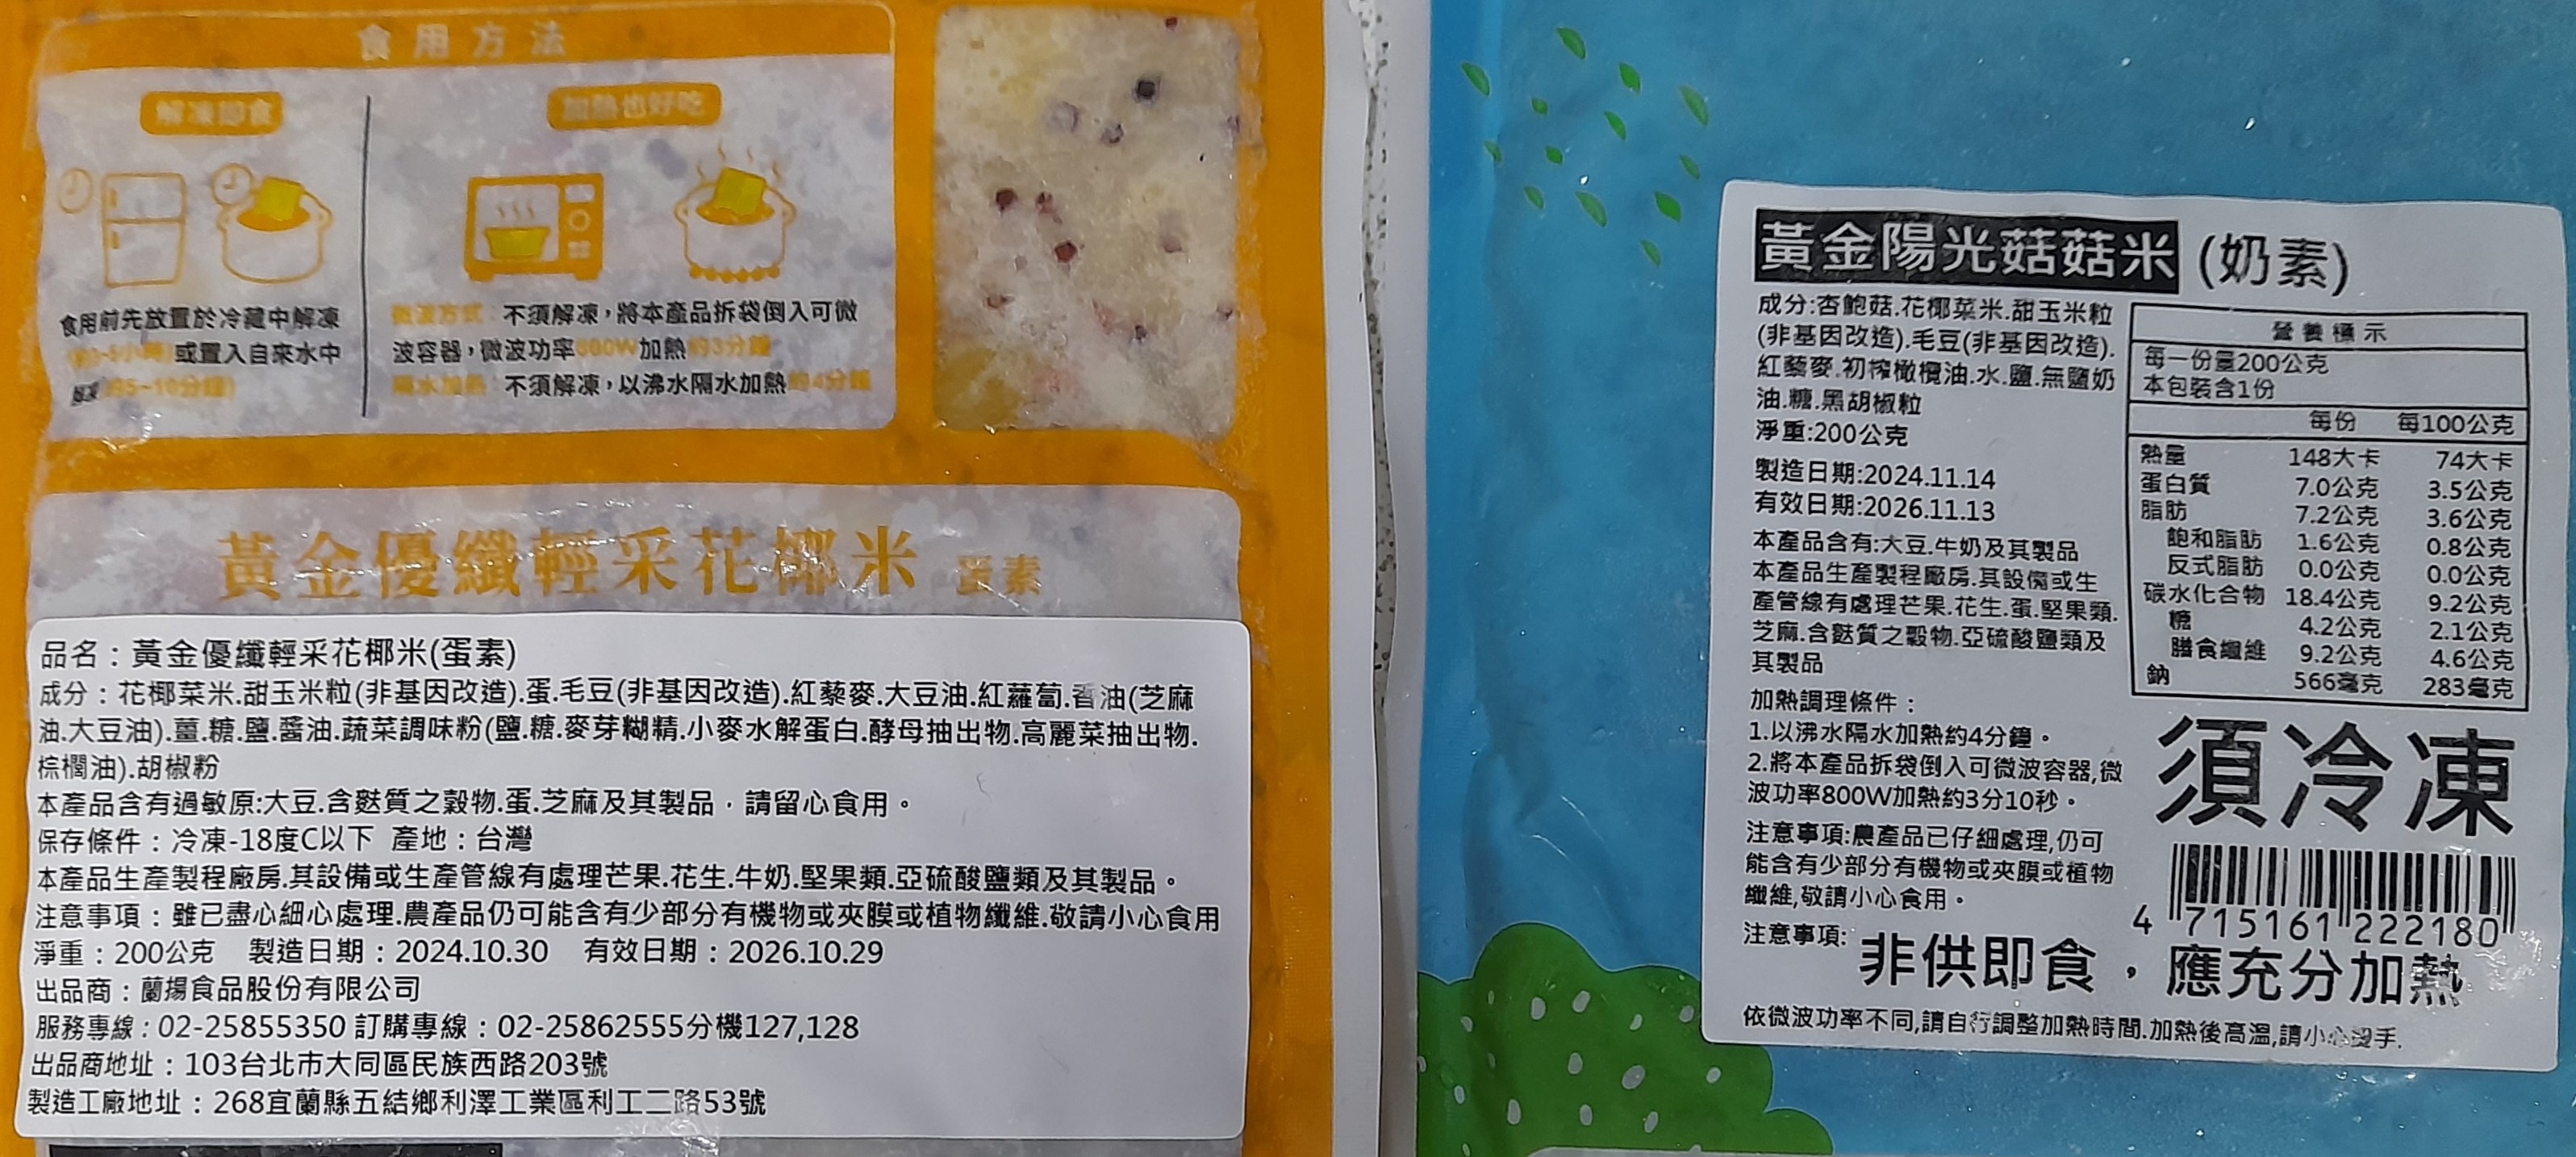 食用方法
解凍即食
加熱也好吃
食用前先放置於冷藏中解凍
或置入自來水中
解凍(約5~10分鐘)
微波方式：不須解凍，將本產品拆袋倒入可微
波容器，微波功率800W加熱約3分鐘
隔水加熱：不須解凍，以沸水隔水加熱約4分鐘
黃金優纖輕采花椰米 蛋素
品名：黃金優纖輕采花椰米(蛋素)
成分：花椰菜米.甜玉米粒(非基因改造).蛋.毛豆(非基因改造).紅藜麥.大豆油.紅蘿蔔.香油(芝麻
油.大豆油).薑.糖.鹽.醬油.蔬菜調味粉(鹽.糖.麥芽糊精.小麥水解蛋白.酵母抽出物.高麗菜抽出物.
棕櫚油).胡椒粉
本產品含有過敏原:大豆.含麩質之穀物.蛋.芝麻及其製品，請留心食用。
保存條件：冷凍-18度C以下 產地：台灣
本產品生產製程廠房.其設備或生產管線有處理芒果.花生.牛奶.堅果類.亞硫酸鹽類及其製品。
注意事項：雖已盡心細心處理.農產品仍可能含有少部分有機物或夾膜或植物纖維.敬請小心食用
淨重：200公克 製造日期：2024.10.30 有效日期：2026.10.29
出品商：蘭揚食品股份有限公司
服務專線：02-25855350 訂購專線：02-25862555分機127,128
出品商地址：103台北市大同區民族西路203號
製造工廠地址：268宜蘭縣五結鄉利澤工業區利工二路53號
黃金陽光菇菇米 (奶素)
成分:杏鮑菇.花椰菜米.甜玉米粒
(非基因改造).毛豆(非基因改造).
紅藜麥.初榨橄欖油.水.鹽.無鹽奶
油.糖.黑胡椒粒
淨重:200公克
製造日期:2024.11.14
有效日期:2026.11.13
本產品含有:大豆.牛奶及其製品
本產品生產製程廠房.其設備或生
產管線有處理芒果.花生.蛋.堅果類.
芝麻.含麩質之穀物.亞硫酸鹽類及
其製品
加熱調理條件：
1.以沸水隔水加熱約4分鐘。
2.將本產品拆袋倒入可微波容器,微
波功率800W加熱約3分10秒。
注意事項:農產品已仔細處理,仍可
能含有少部分有機物或夾膜或植物
纖維,敬請小心食用。
營養標示
每一份量200公克
本包裝含1份
每份 每100公克
熱量 148大卡 74大卡
蛋白質 7.0公克 3.5公克
脂肪 7.2公克 3.6公克
飽和脂肪 1.6公克 0.8公克
反式脂肪 0.0公克 0.0公克
碳水化合物 18.4公克 9.2公克
糖 4.2公克 2.1公克
膳食纖維 9.2公克 4.6公克
鈉 566毫克 283毫克
須冷凍
4 715161 222180
注意事項: 非供即食，應充分加熱
依微波功率不同,請自行調整加熱時間.加熱後高溫,請小心燙手.